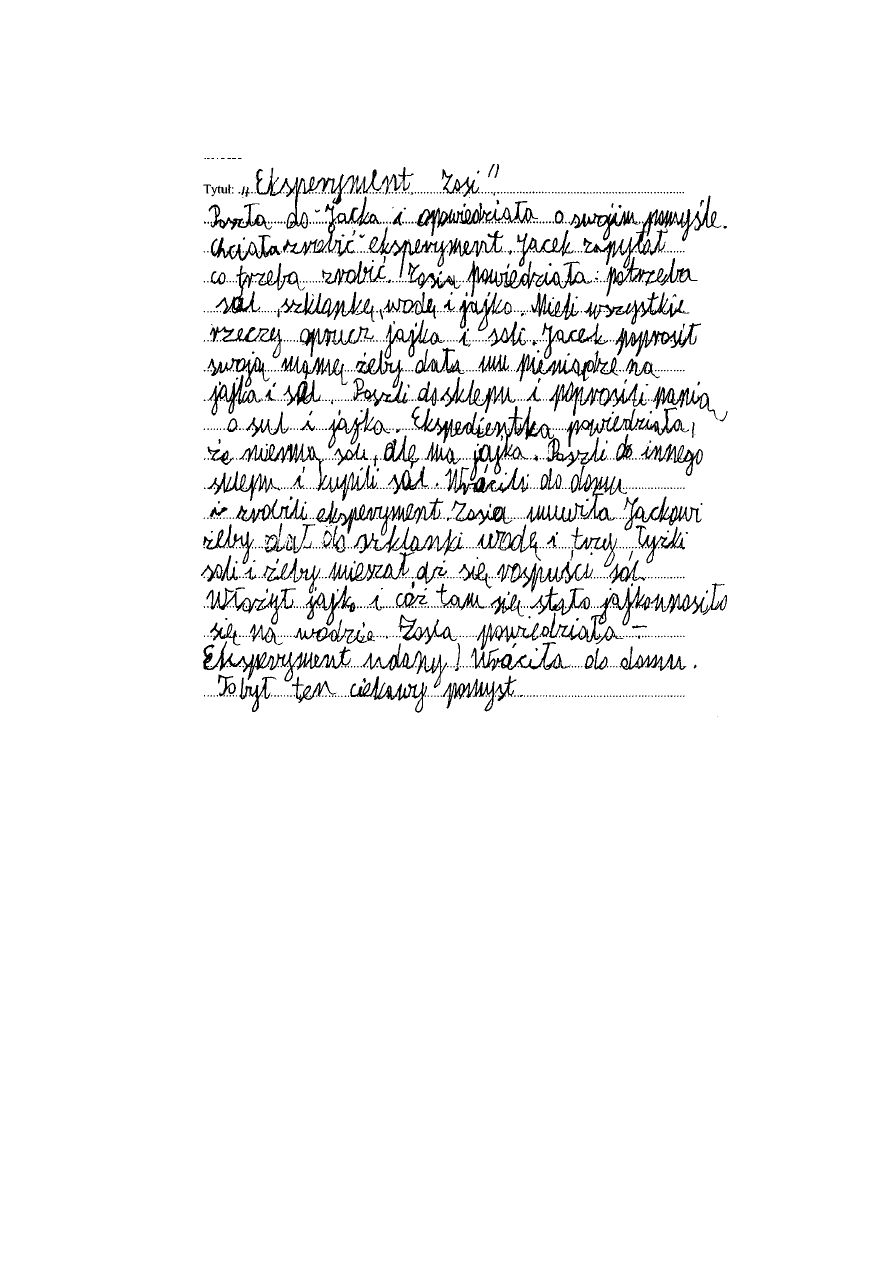 Tytuł: „Eksperyment Zosi"
Poszła do Jacka i opowiedziała o swojim pomyśle.
Chciała zrobić eksperyment. Jacek zapytał
co trzeba zrobić. Zosia powiedziała: potrzeba
sól, szklankę, wodę i jajko. Mieli wszystkie
rzeczy oprucz jajka i soli. Jacek poprosił
swoją mamę żeby dała mu pieniądze na
jajka i sól. Poszli do sklepu i poprosili pania
o sul i jajka. Ekspedientka powiedziała,
że niema soli, ale ma jajka. Poszli do innego
sklepu i kupili sól. Wrácili do domu
i zrobili eksperyment. Zosia muwiła Jackowi
żeby dał do szklanki wodę i trzy łyżki
soli i żeby mieszał aż się rospuści sól.
Włożył jajko i cóż tam się stało jajko unosiło
się na wodzie. Zosia powiedziała –
Eksperyment udany! Wráciła do domu.
To był ten ciekawy pomysł.